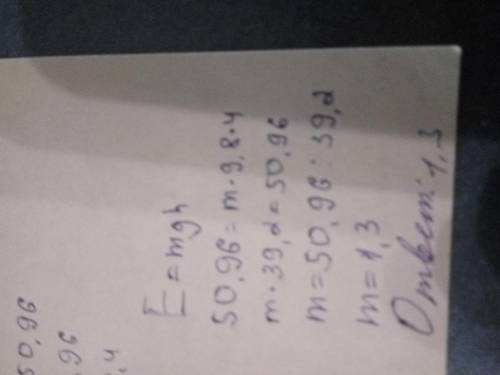 E = mgh
50,96 = m · 9,8 · 4
m · 39,2 = 50,96
m = 50,96 : 39,2
m = 1,3
Ответ: 1,3
50,96
,96
,4